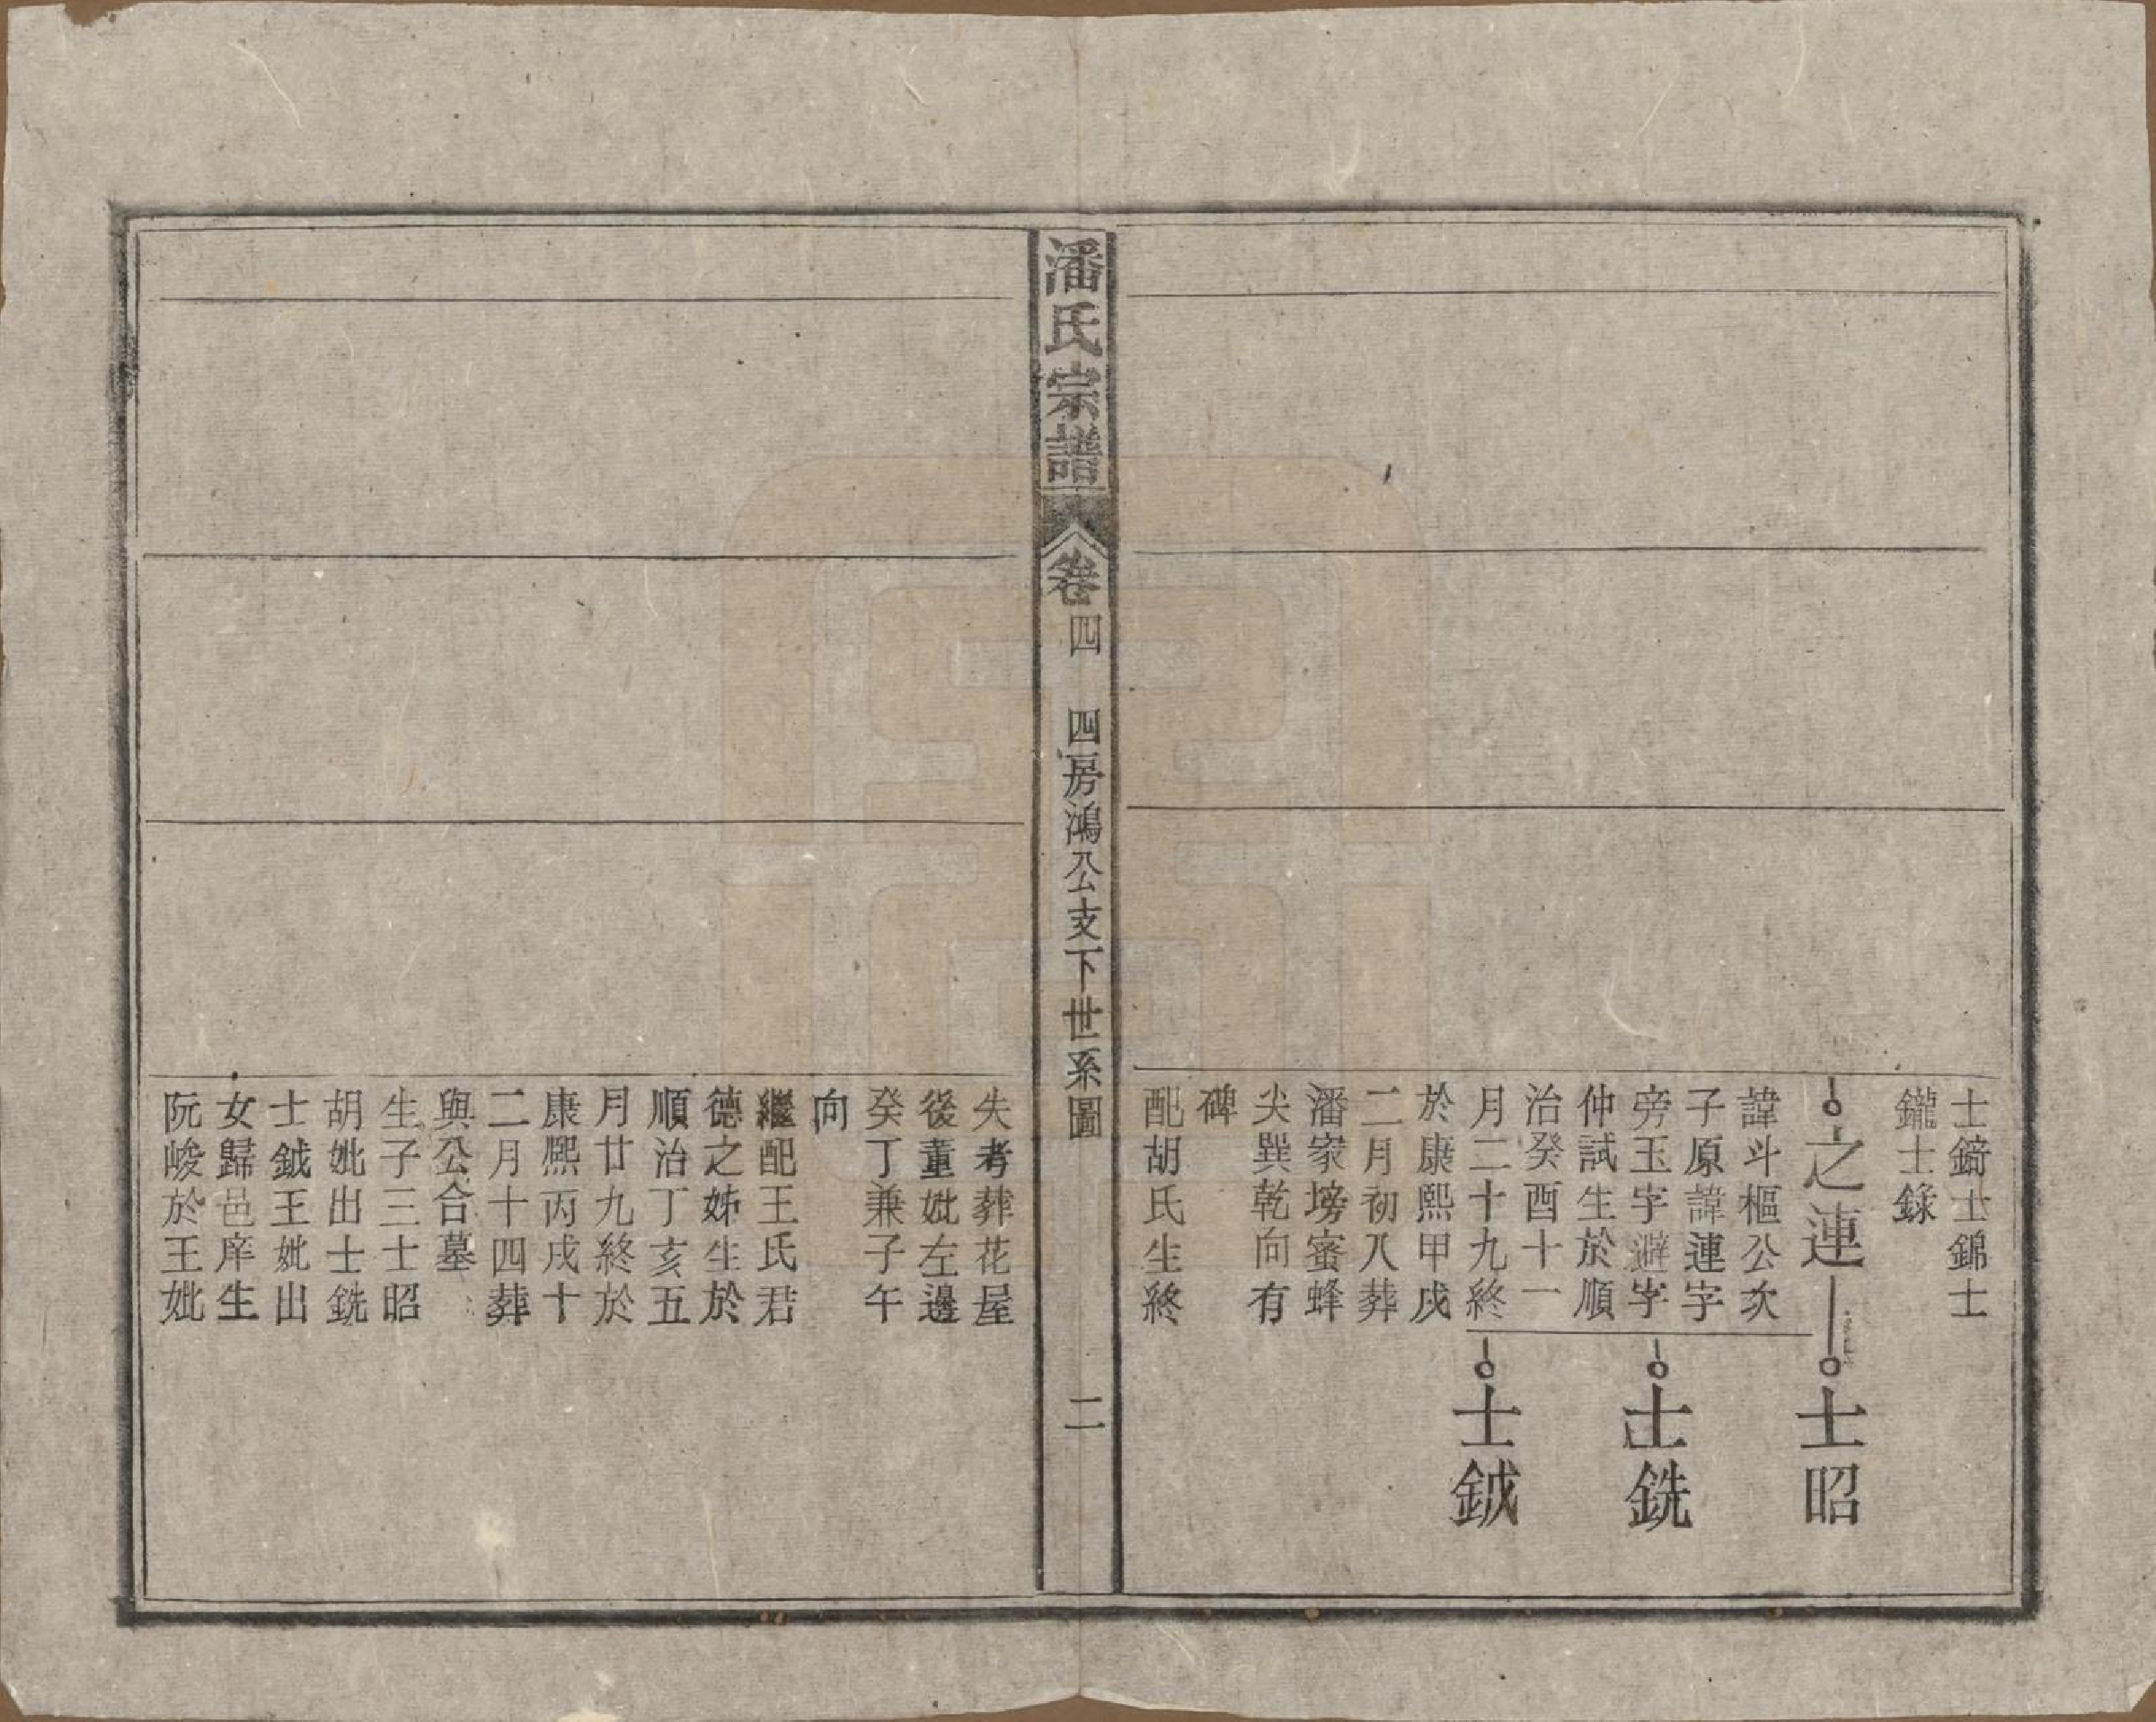 士錡士錦士
鑨士錄
之連
諱斗樞公次
子原諱連字
旁玉字避字
仲試生於順
治癸酉十一
月二十九終
於康熙甲戌
二月初八葬
潘家塝蜜蜂
尖巽乾向有
碑
配胡氏生終
士昭
士銑
士鉞
潘氏宗譜
卷四
四房鴻公支下世系圖
二
失考葬花屋
後董妣左邊
癸丁兼子午
向
繼配王氏君
德之姊生於
順治丁亥五
月廿九終於
康熙丙戌十
二月十四葬
與公合墓
生子三士昭
胡妣出士銑
士鉞王妣出
女歸邑庠生
阮峻於王妣